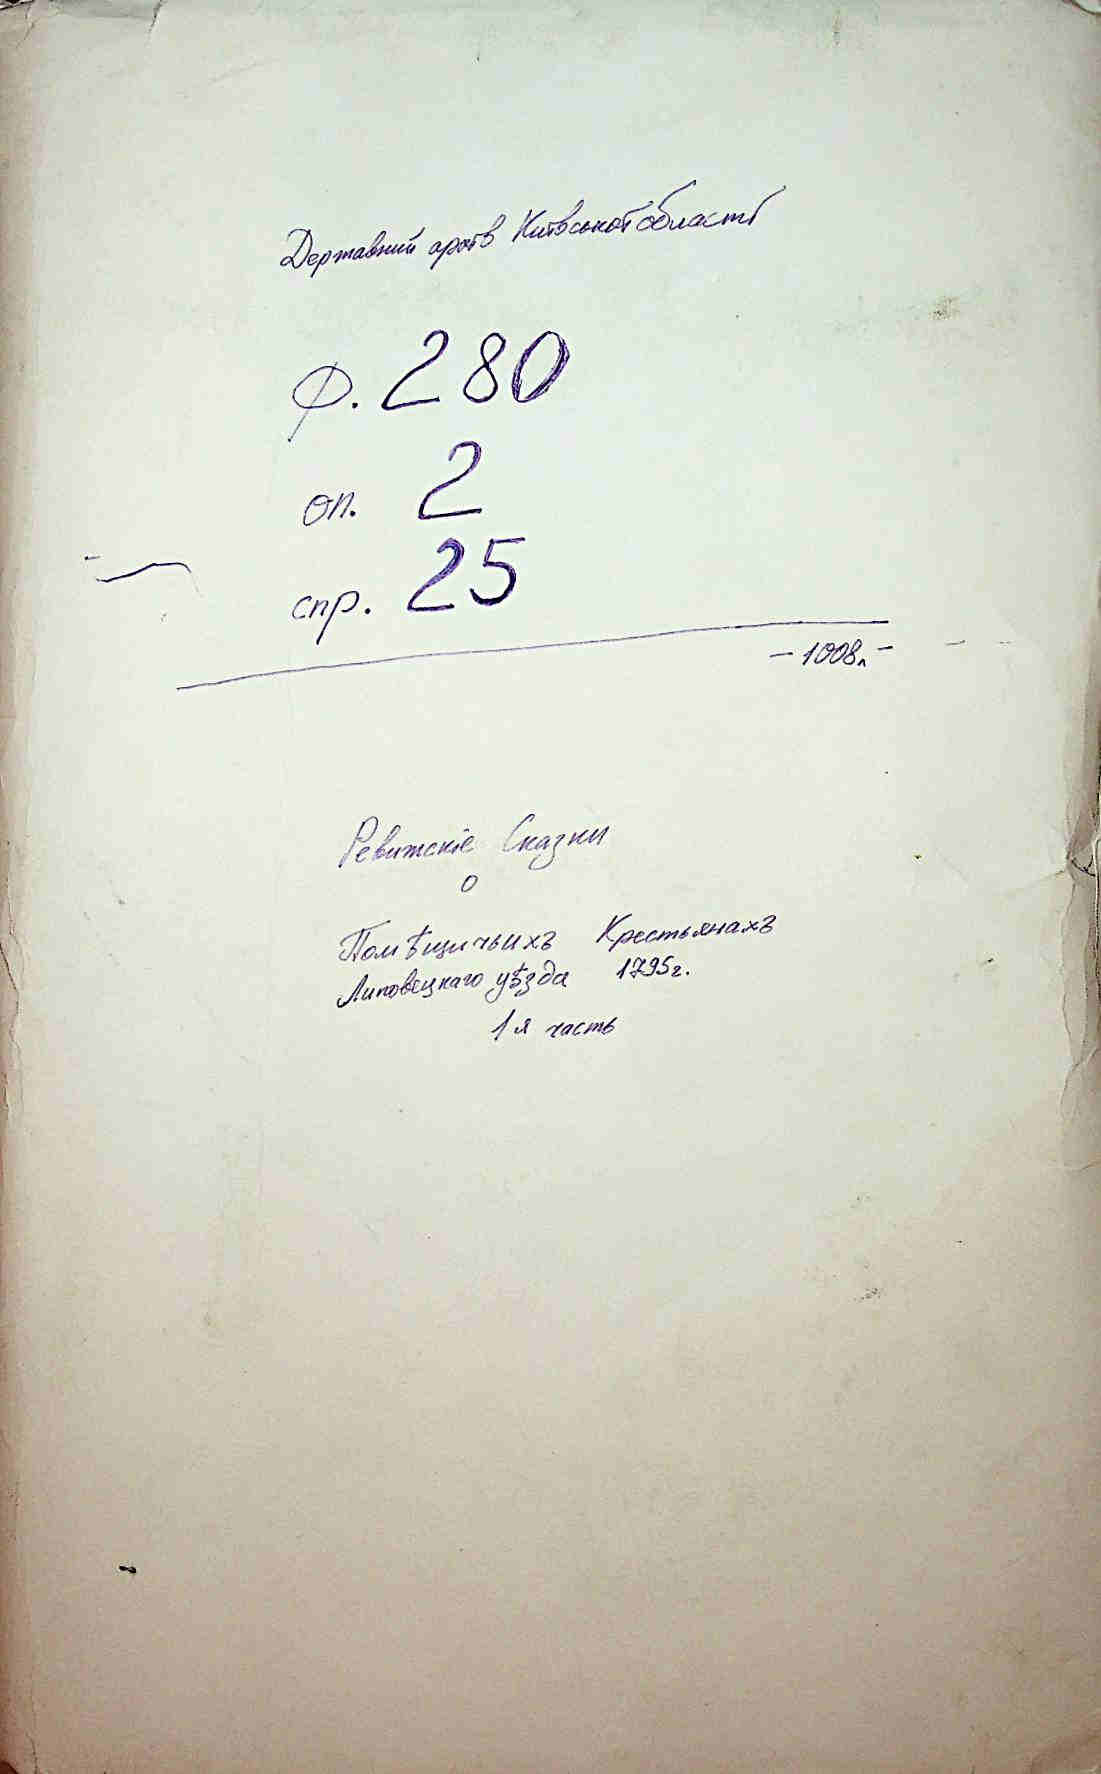 Державний архів Київської області
ф. 280
оп. 2
спр. 25
- 1008л -
Ревижскіе Сказки
о
Помѣщичьихъ Крестьянахъ
Липовецкаго уѣзда 1795г.
1я часть